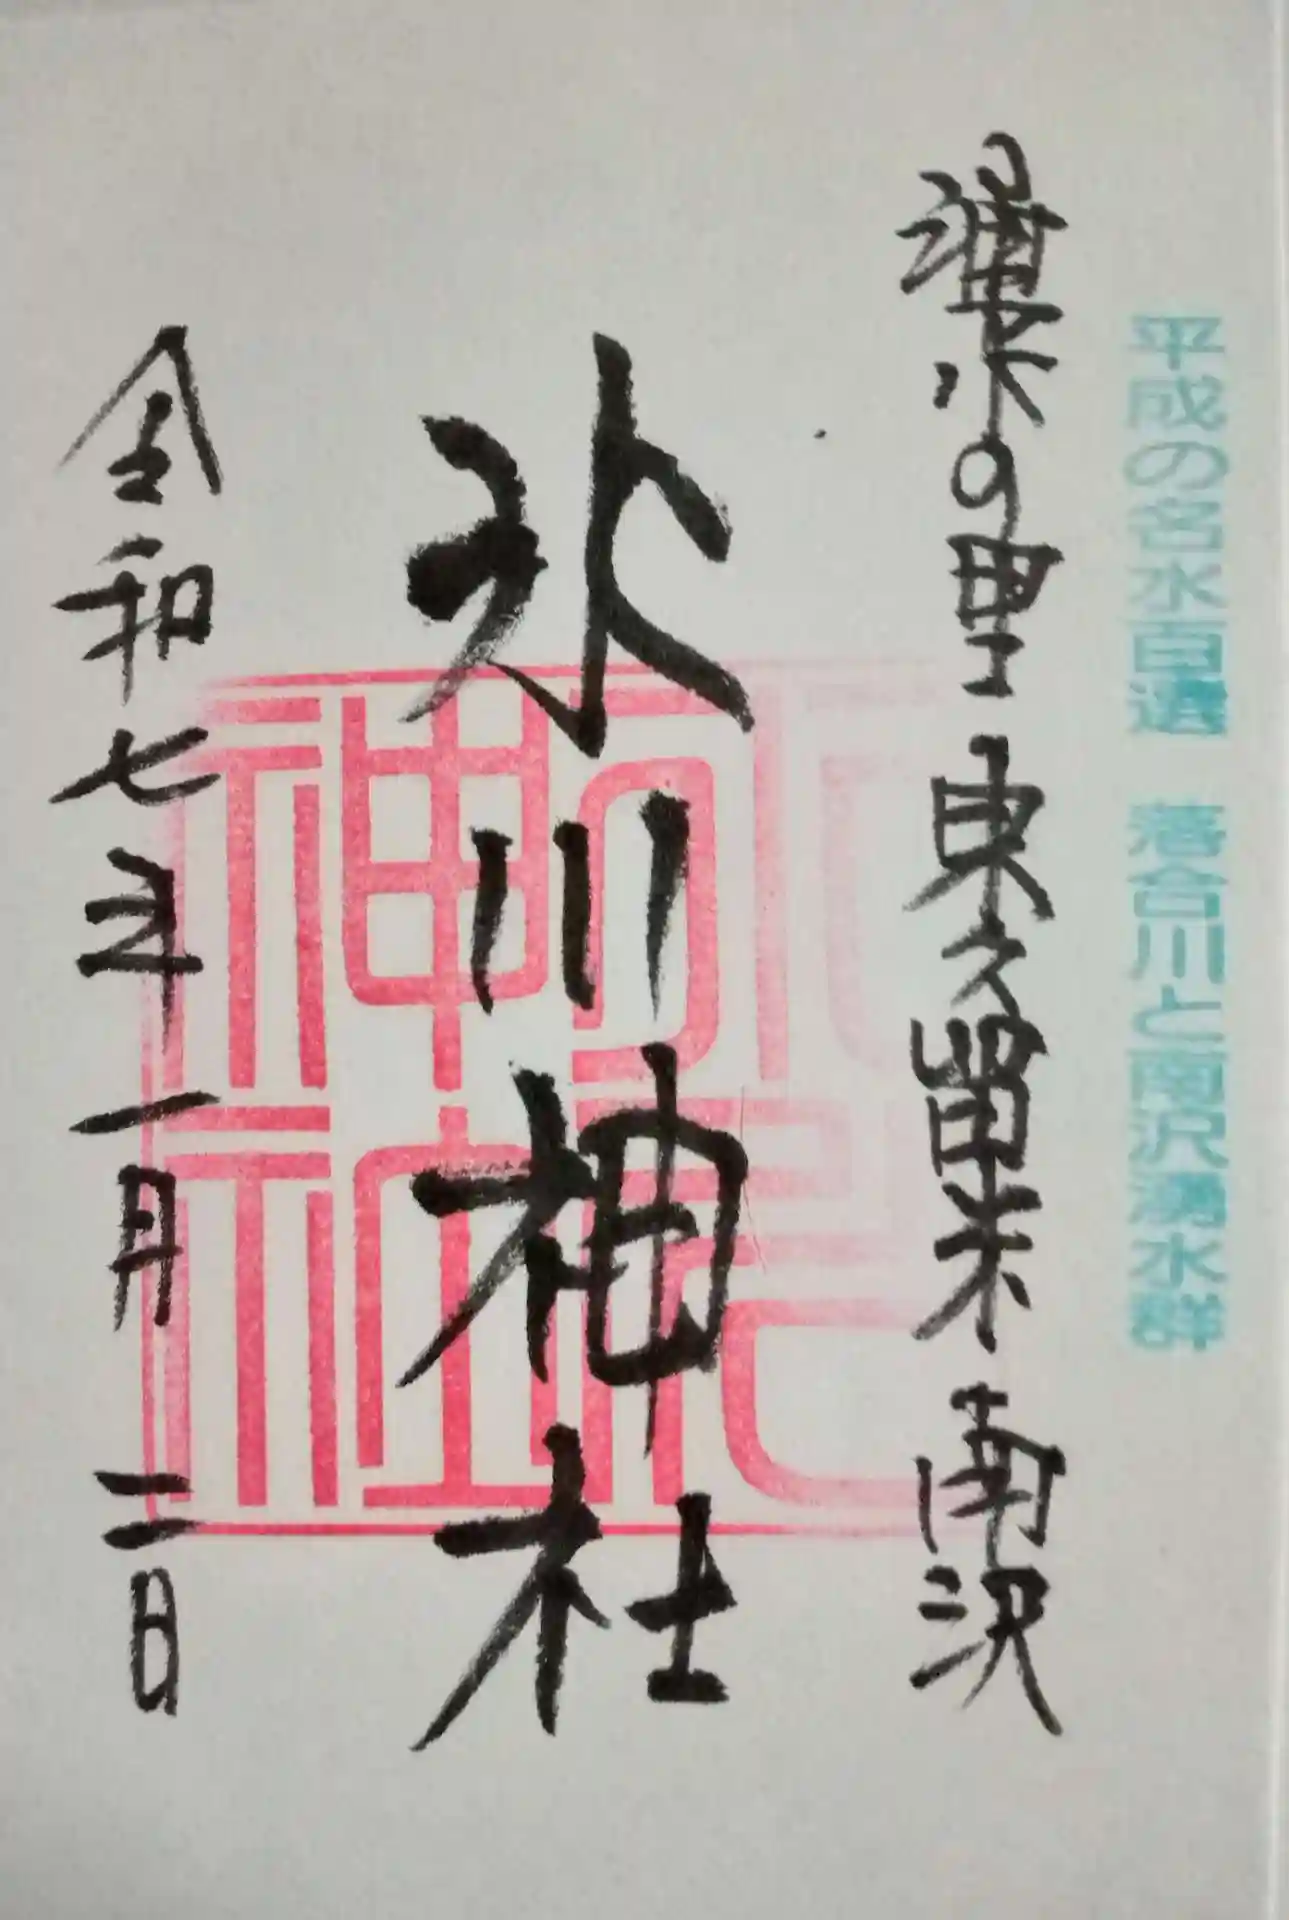 平成の名水百選 落合川と南沢湧水群
湧水の里 東久留米 南沢
氷川神社
令和七年一月二日